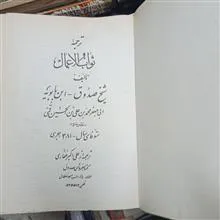 ترجمه
ثواب الاعمال
تألیف
شیخ صدوق - ابن بابویه
ابی جعفر محمد بن علی بن الحسین قمی
متوفای سال ۳۸۱ هجری
ترجمه از علی اکبر غفاری
کتابفروشی صدوق